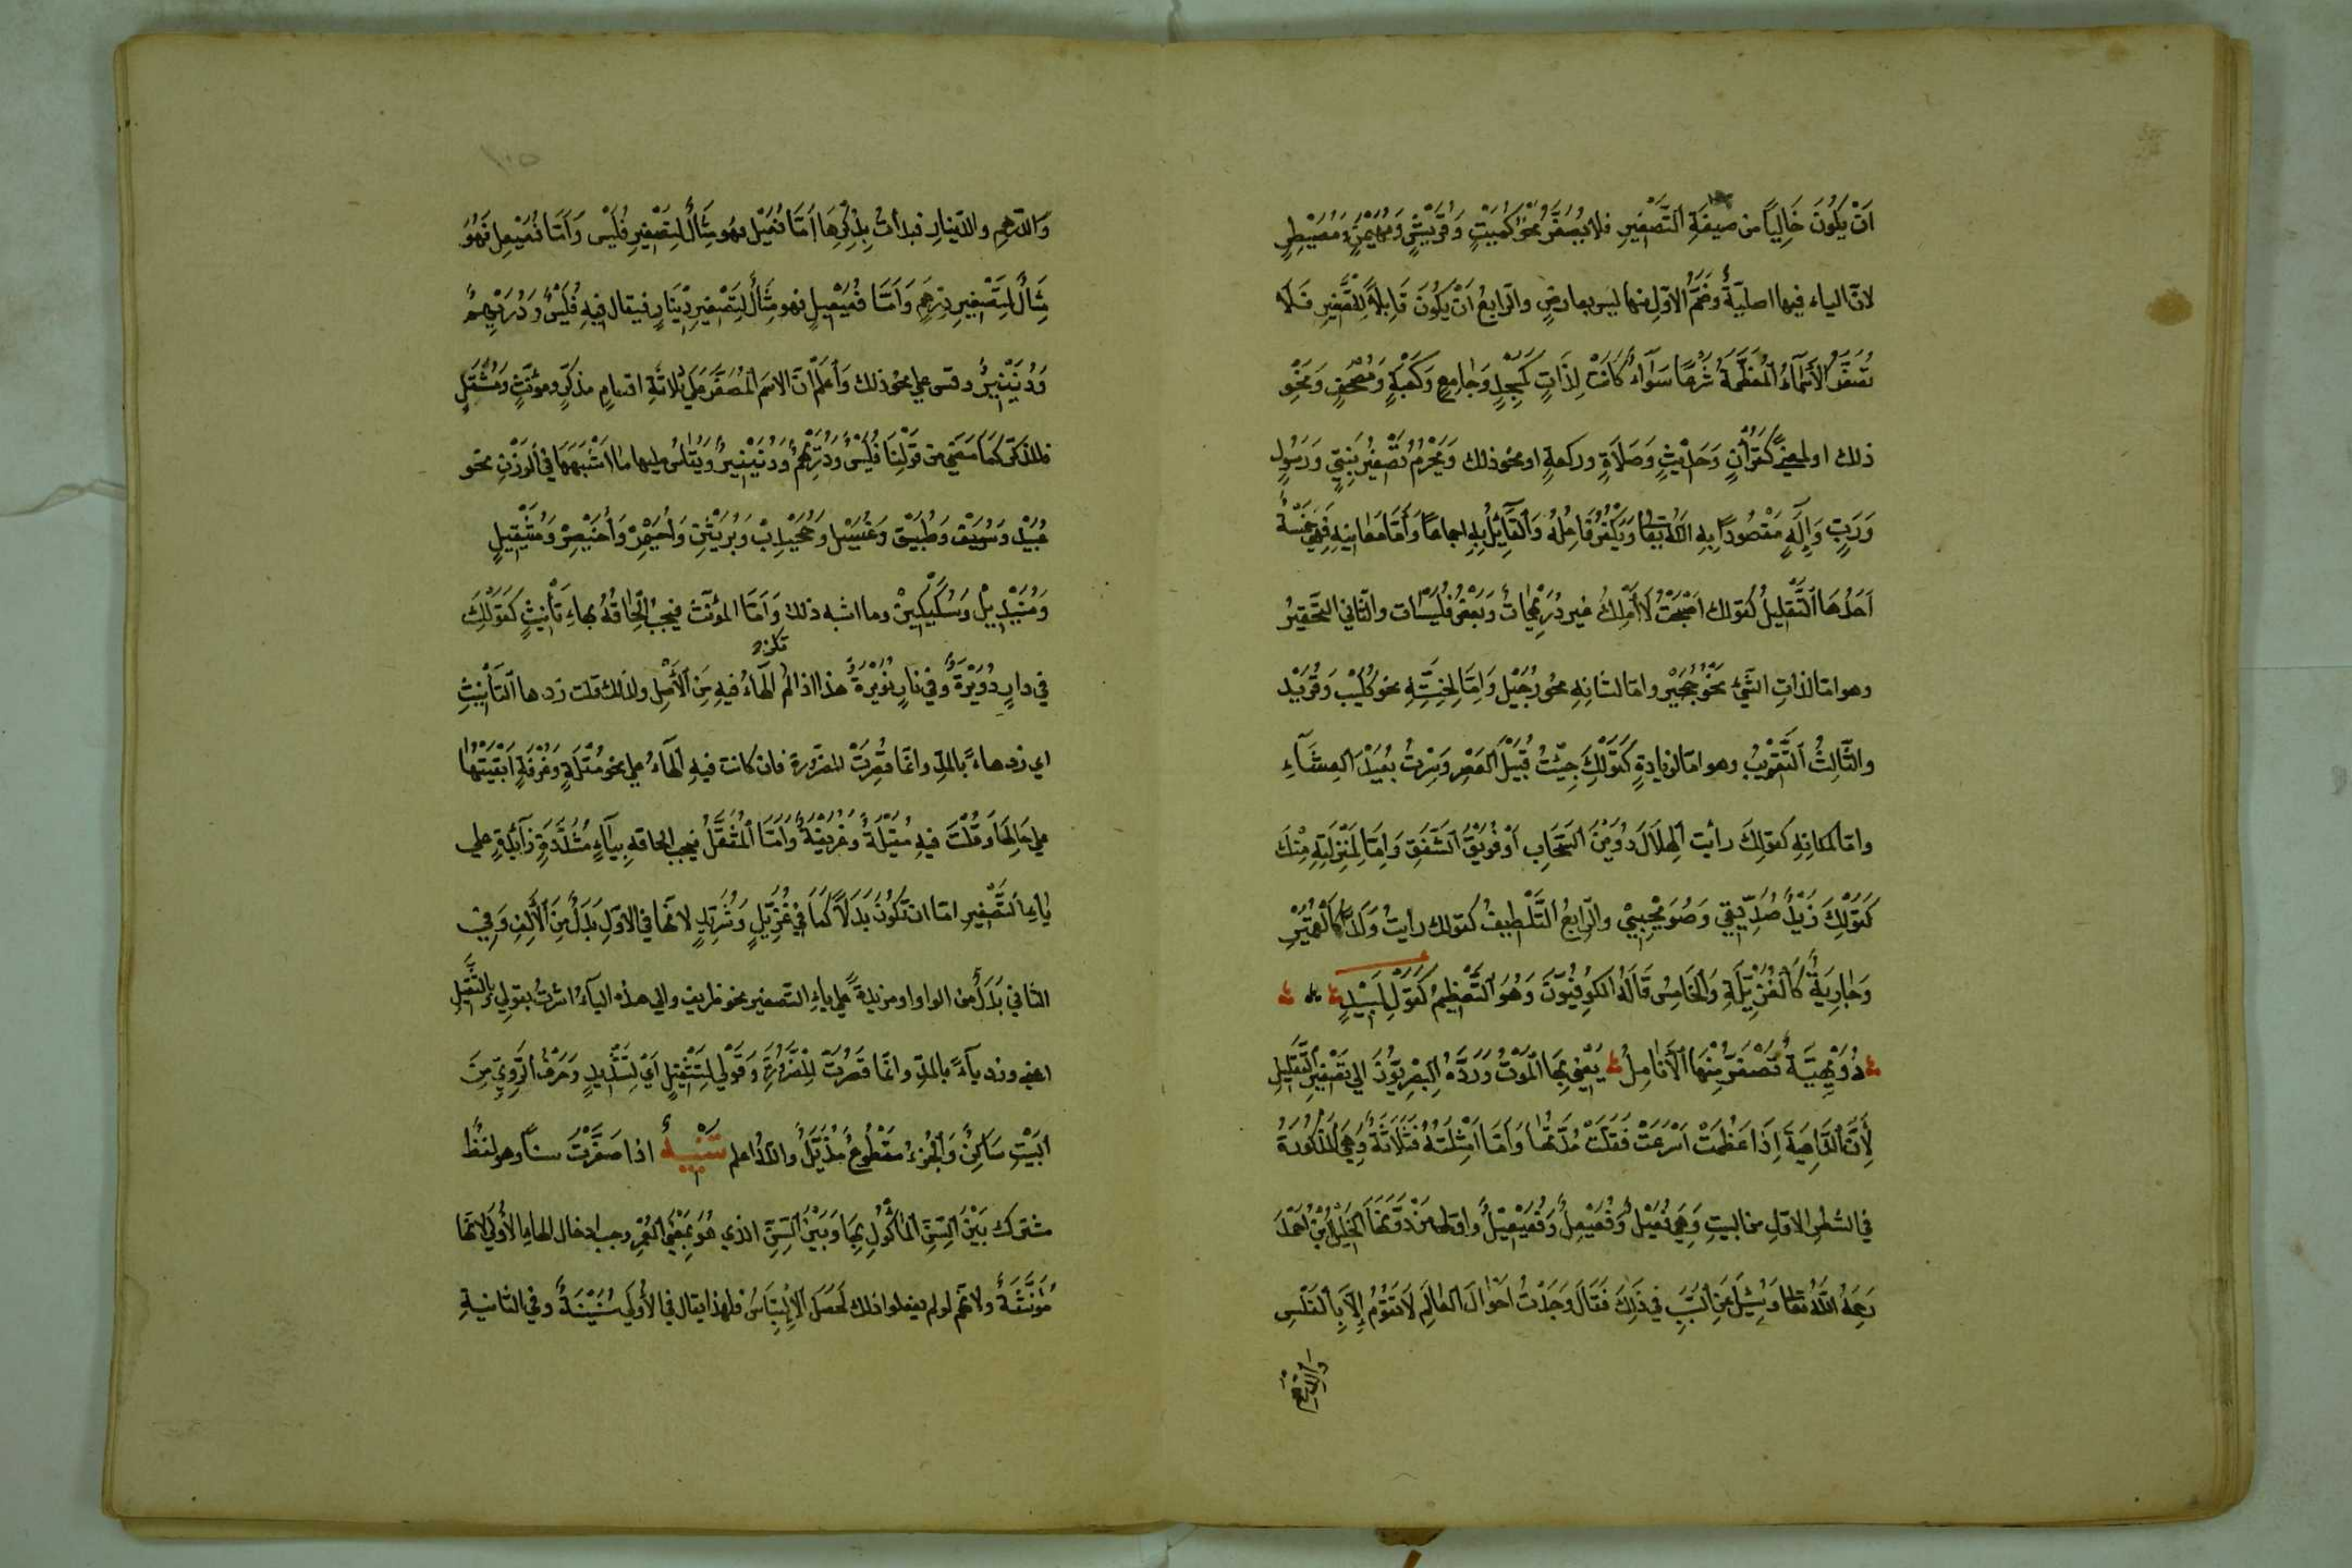 اَنْ يَكُونَ خَالِيًا من صيغَةِ التَّصْغِيرِ فلا يُصَغَّرُ نَحْوُ كُمَيْتٍ وَقُرَيْشٍ وَمُهَيْمِنٍ وَمُصَيْطِرٍ
لانّ الياء فيها اصليّةٌ وضَمُّ الاوّلِ منها ليس بعارضٍ والرّابعُ اَنْ يَكُونَ قَابِلاً لِلتَّصْغِيرِ فَلاَ
تُصَغَّرُ الأَسْمَآءُ الْمُعَظَّمَةُ شَرْعًا سَوَآءٌ كَانَتْ لِذَاتٍ كَمَسْجِدٍ وَجَامِعٍ وَكَعْبَةٍ وَمُصْحَفٍ وَنَحْوِ
ذلك او لمعنىً كَقُرْأٰنٍ وَحَدِيْثٍ وَصَلاَةٍ وركعةٍ او نحو ذلك وَيَحْرُمُ تَصْغِيرُ نَبِيٍّ وَرَسُولٍ
وَرَبٍّ وَاِلٰهٍ مَقْصُودًا بِهِ اللّٰهُ تعالى وَيَكْفُرُ فَاعِلُهُ وَالْقَآئِلُ بِهِ اجماعًا وَأَمَّا مَعَانِيهِ فَهِيَ خَمْسَةٌ
اَحَدُهَا التَّقْلِيلُ كقولك اَصْبَحْتُ لاَ أَمْلِكُ غير دُرَيْهِمَاتٍ وَبَعْضُ فُلَيْسَات والثّاني التَّحْقِيْرُ
وهو امّا لذاتِ الشَّيْءِ نَحْوُ حُجَيْرٍ وامّا لشانِهِ نحو رُجَيْل وَاِمَّا لِخِسَّتِهِ نحو كُلَيْب وَقُرَيْد
والثَّالِثُ اَلتَّقْرِيْبُ وهو امّا لزيادةٍ كَقَوْلِكَ جِئْتُ قُبَيْلَ العَصْرِ وَسِرْتُ بُعَيْدَ الْعِشَآءِ
وامّا لمكانِهِ كَقولِكَ رأيت الْهِلاَلَ دُوَيْنَ السَّحَابِ اَوْ فُوَيْقَ الشَّفَقِ وَاِمَّا لِمَنْزِلَتِهِ مِنْكَ
كَقَوْلِكَ زَيْدٌ صُدَيِّقِي وَصُوَيْحِبِيْ والرَّابِعُ التَّلْطِيفُ كقولك رأيتُ وَلَدًا كَالْقُمَيْرِ
وَجَارِيَةً كَالْغُزَيِّلَةِ وَالْخَامِسُ قَالَهُ الكوفِيُّونَ وَهُوَ التَّعْظِيمُ كَقَوْلِ لَبِيْدٍ
دُوَيْهِيَّةٌ تَصْفَرُّ مِنْهَا الْأَنَامِلُ يَعْنِي بِهَا الْمَوْتُ وَرَدَّهُ الْبَصْرِيُّونَ الى تَصْغِيْرِ التَّقْلِيْلِ
لِأَنَّ الدَّاهِيَةَ اِذَا عَظُمَتْ اَسْرَعَتْ فَقَلَّتْ مُدَّتُهَا وَاَمَّا اَمْثِلَتُهُ فَثَلاَثَةٌ وَهِيَ الْمَذْكُورَةُ
في الشطرِ الاوّلِ من البيتِ وَهِيَ فُعَيْلٌ وَفُعَيْعِلٌ وَفُعَيْعِيْلٌ واوّل مَنْ دَوَّنَهَا الْخَلِيْلُ بْنُ أَحْمَدَ
رَحِمَهُ اللهُ تعالى وَسُئِلَ عَنِ السَّبَبِ فِي ذَلِكَ فَقَالَ وَجَدْتُ اَحْوَالَ العَالَمِ لاَ تَقُوْمُ إِلاَّ بِالْفَلْسِ
والدّرهم
وَالدّرهمِ والدّينارِ فبدأتُ بِذِكْرِهَا اَمَّا فُعَيْل فهو مِثَالٌ لِتَصْغِيرِ فَلْس وَاَمَّا فُعَيْعِل فَهُوَ
مِثَالٌ لِتَصْغِيرِ دِرْهَمٍ وَاَمَّا فُعَيْعِيلٍ فهو مِثَالٌ لِتَصْغِيرِ دِيْنَارٍ فيقال فيهِ فُلَيْسٌ وَدُرَيْهِمٌ
وَدُنَيْنِيْرٌ وقس على نحو ذلك وَأعلمْ اَنَّ الاسمَ الْمُصَغَّرَ عَلَى ثلاثَةِ اقسامٍ مذكّرٍ ومؤنَّثٍ وَمُثَقَّلٍ
فالمذكّر كَمَا مضى من قَوْلِنَا فُلَيْسٌ وَدُرَيْهِمٌ وَدُنَيْنِيْرٌ وَيُقَاسُ عليها ما اَشْبَهَهَا في الوزنِ نحو
عُبَيْد وَسُيَيْف وَطُبَيْق وَغُسَيْل وَحُجَيْدِبْ وَبُرَيْثِن وَأُحَيْمِرْ وَأُخَيْصِرْ وَمُثَيْقِيلٍ
وَمُنَيْدِيْل وَسُكَيْكِيْنْ وما اشبه ذلك وَاَمَّا المؤنّث فيجبُ اِلْحَاقُهُ بهاءِ تَأنِيثٍ كَقَوْلِكَ
في دارٍ دُوَيْرَةٌ وَفي نارٍ نُوَيْرَةٌ هذا اذا لم تكن الْهَاءُ فيهِ مِنَ الأَصْلِ ولذلك قلت زد ها التأنِيْثِ
اى زد هاءً بالمدّ وانّما قُصِرَتْ للضّرورة فان كانت فيهِ الْهَآءُ على نحو مُقْلَةٍ وَغُرْفَةٍ اَبْقَيْتَهَا
على حَالِهَا وَقُلْتَ فيهِ مُقَيْلَةٌ وَغُرَيْفَةٌ وَاَمَّا الْمُثَقَّلُ فيجب الحاقهِ بِيَآءٍ مُشَدَّدَةٍ زَآئِدَةٍ على
ياءِ التَّصْغِيرِ امّا ان تَكُونَ بَدَلاً كَمَا في غُزَيِّلٍ وَشُرَيِّدٍ لانّها في الاوّلِ بَدَلٌ مِنَ الْأَلِفِ وَفِيْ
الثّاني بَدَلٌ من الواو او مزيدةً على ياءِ التّصغير نحو ظريف والى هذه الياءِ اشرتُ بقولي بالتَّثْقِيلِ
اعني وزد يآءً بالمدّ وانّما قَصَرْتُ لِلضَّرُوْرَةِ وَقَوْلِي لِتَثْقِيْلٍ اَيْ لِتَشْدِيْدٍ وَحَرْفُ الرَّوِيِّ مِنَ
البَيْتِ سَاكِنٌ وَالْجُزْءُ مَقْطُوْعٌ مُذَيَّلٌ واللّٰهُ اعلم تَنْبِيْهٌ اذا صَغَّرْتَ سنًّا وهو لفظٌ
مشترك بَيْنَ السِّنِّ الْمَأكُوْلِ بِهَا وَبَيْنَ السِّنِّ الذي هُوَ بِمَعْنَى العُمْرِ وجب ادخال الهاءِ الْأُوْلَى لانّها
مُؤَنَّثَةٌ ولانّهم لو لم يفعلوا ذلك لَحَصَلَ الْاِلْتِبَاسُ فلهذا يقال في الأُولى سُنَيْنَةٌ وفي الثانيةِ